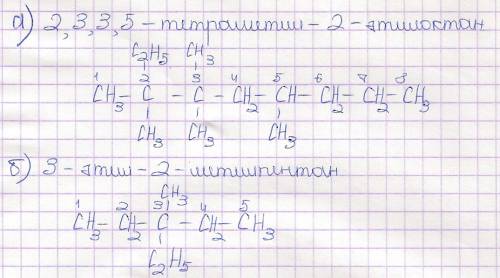 а) 2,3,3,5 – тетраметил – 2 – этилоктан
C₂H₅ CH₃
1 2 3 4 5 6 7 8
CH₃ – C – C – CH₂ – CH – CH₂ – CH₂ – CH₃
CH₃ CH₃ CH₃
б) 3 – этил – 2 – метилпентан
CH₃
1 2 3 4 5
CH₃ – CH₂ – C – CH₂ – CH₃
C₂H₅